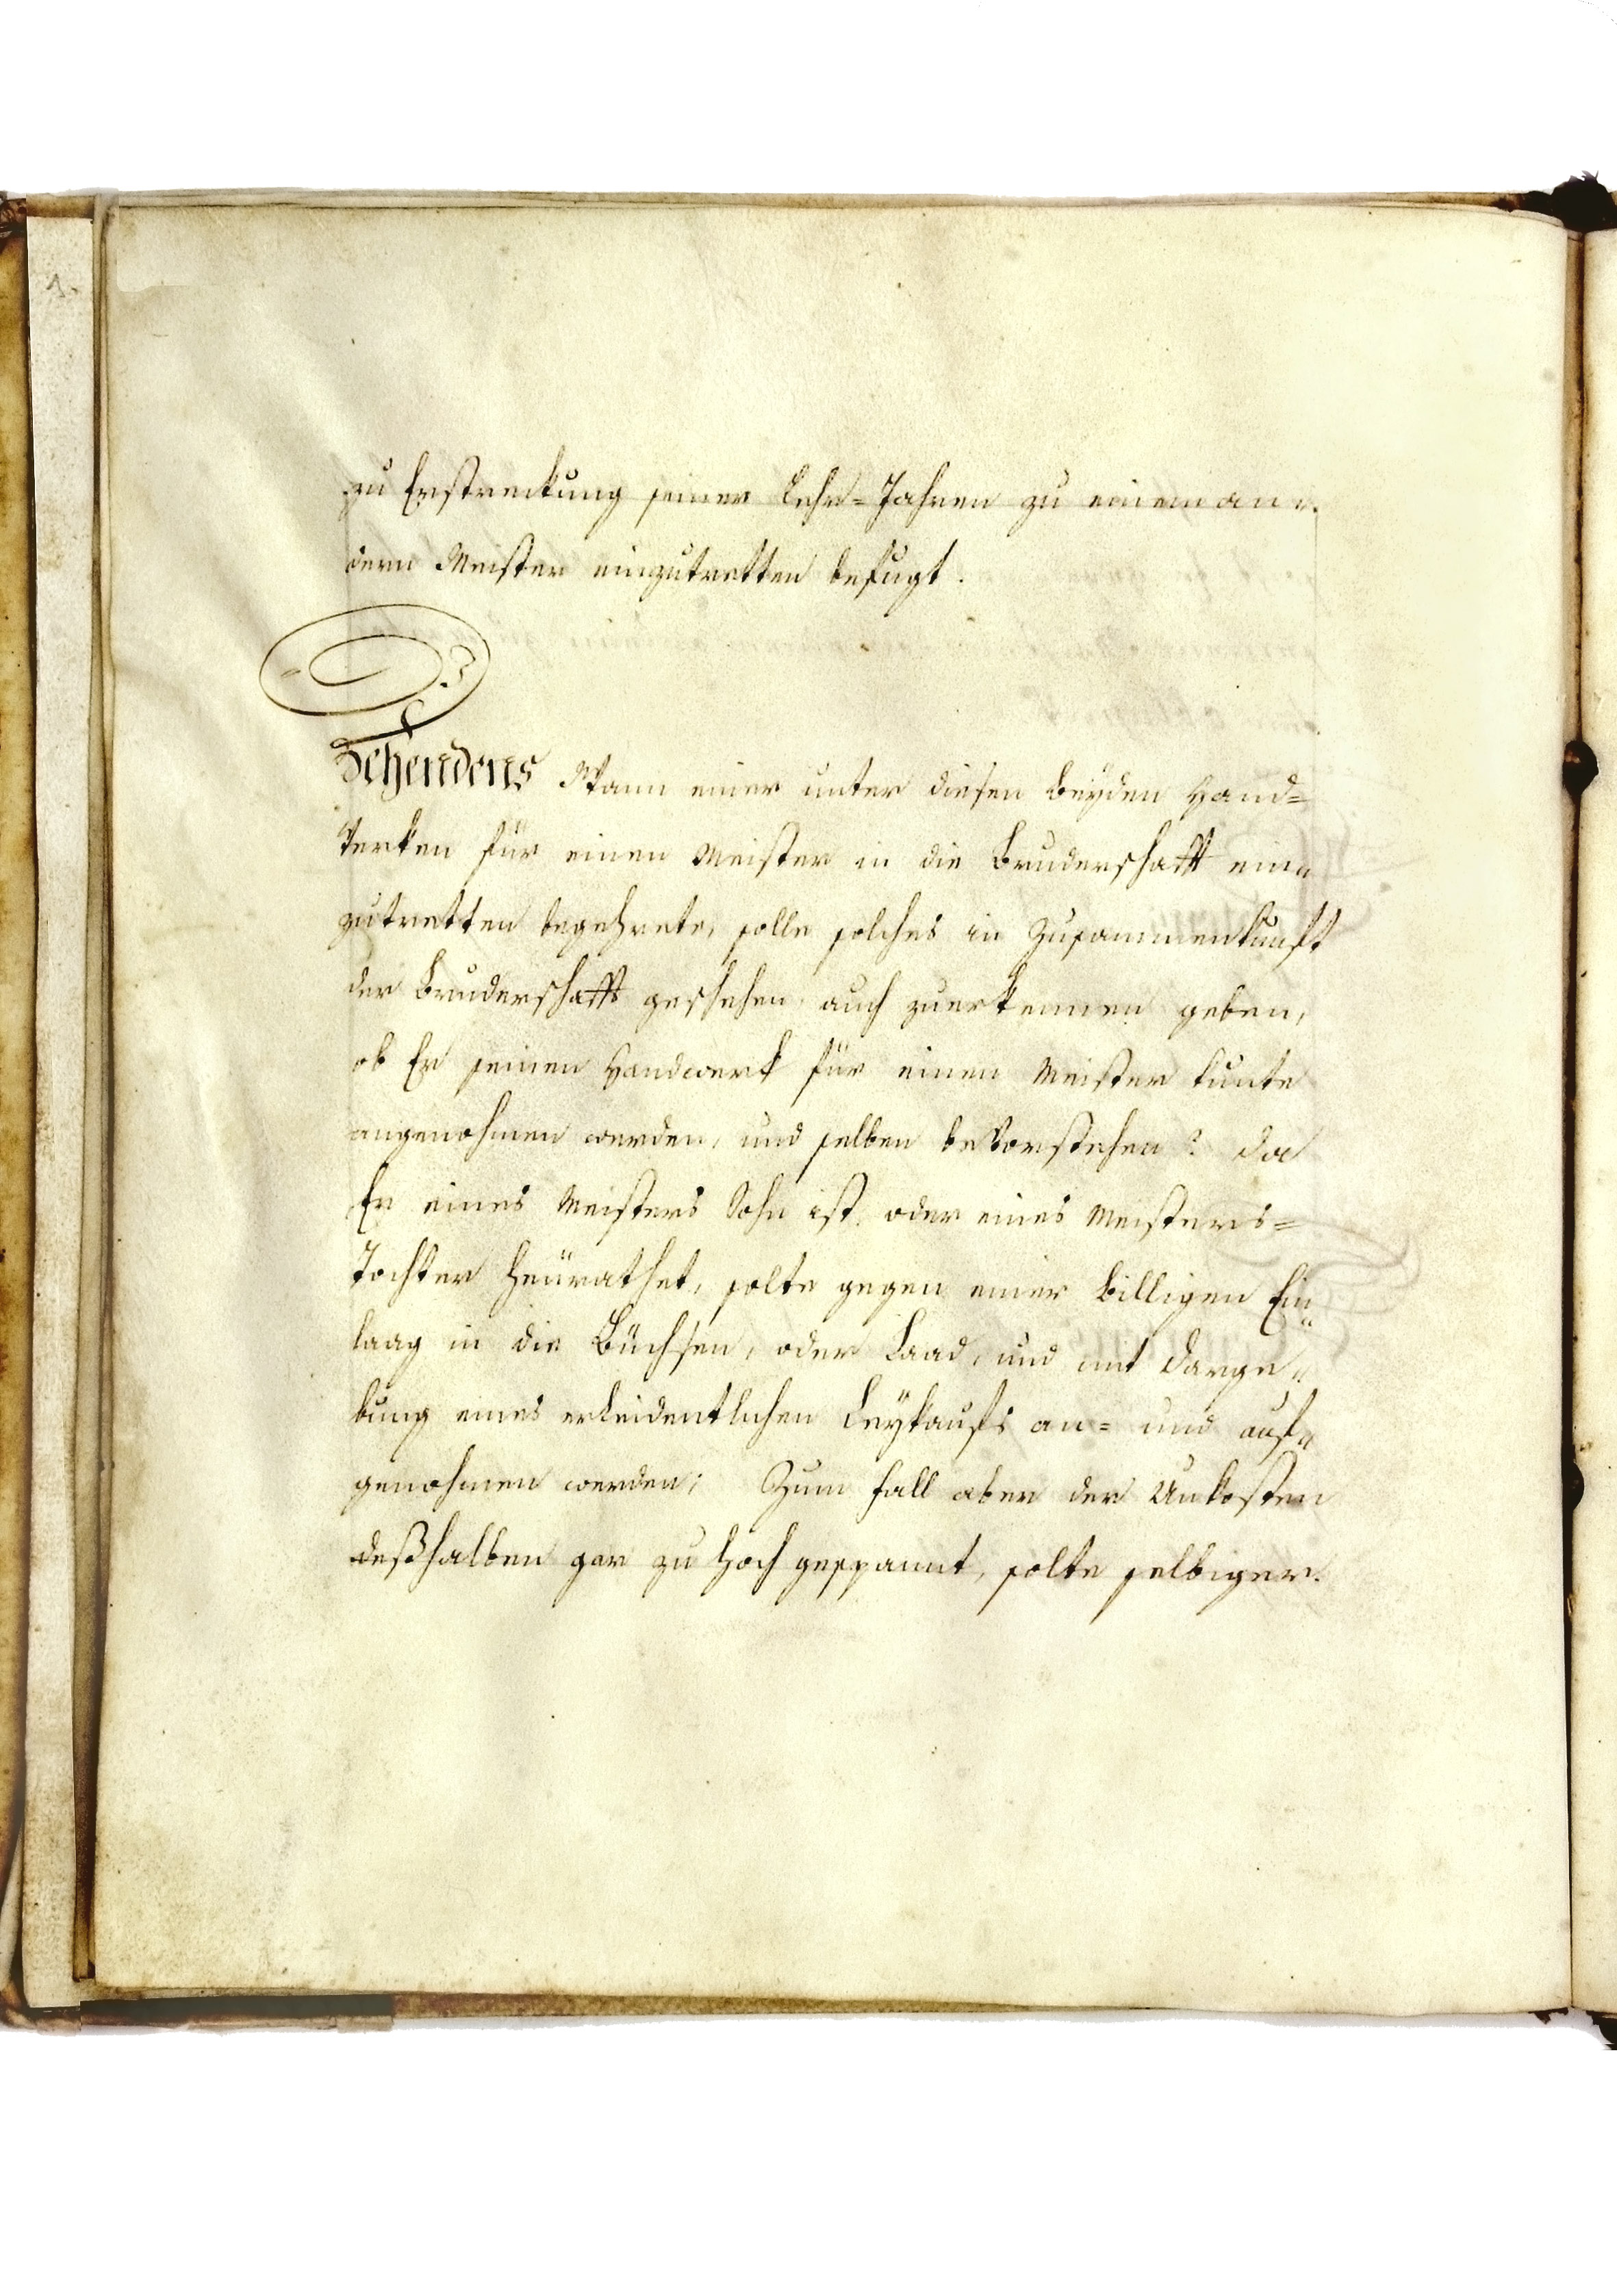 1.
zu Erstreckung seiner Lehr=Jahren zu einem an=
dern Meister einzutretten befugt.
Zehendens Wann einer unter diesen beÿden Hand=
werken für einen Meister in die Bruderschafft ein=
zutretten begehrete, solle solches in Zusammenkunft
der Bruderschafft geschehen, auch zuerkennen geben,
ob Er seinen Handwerk für einen Meister kunte
angenohmen werden, und selben bevorstehen? da
Er eines Meisters Sohn ist, oder eines Meisters=
Tochter heürathet, solte gegen einer billigen Ein=
laag in die Büchsen, oder Laad, und mit Darge=
bung eines erleidentlichen Leÿkaufs an= und auf=
genohmen werden; Zum fall aber der Unkosten
deßhalben gar zu hoch gespannt, solte selbiger